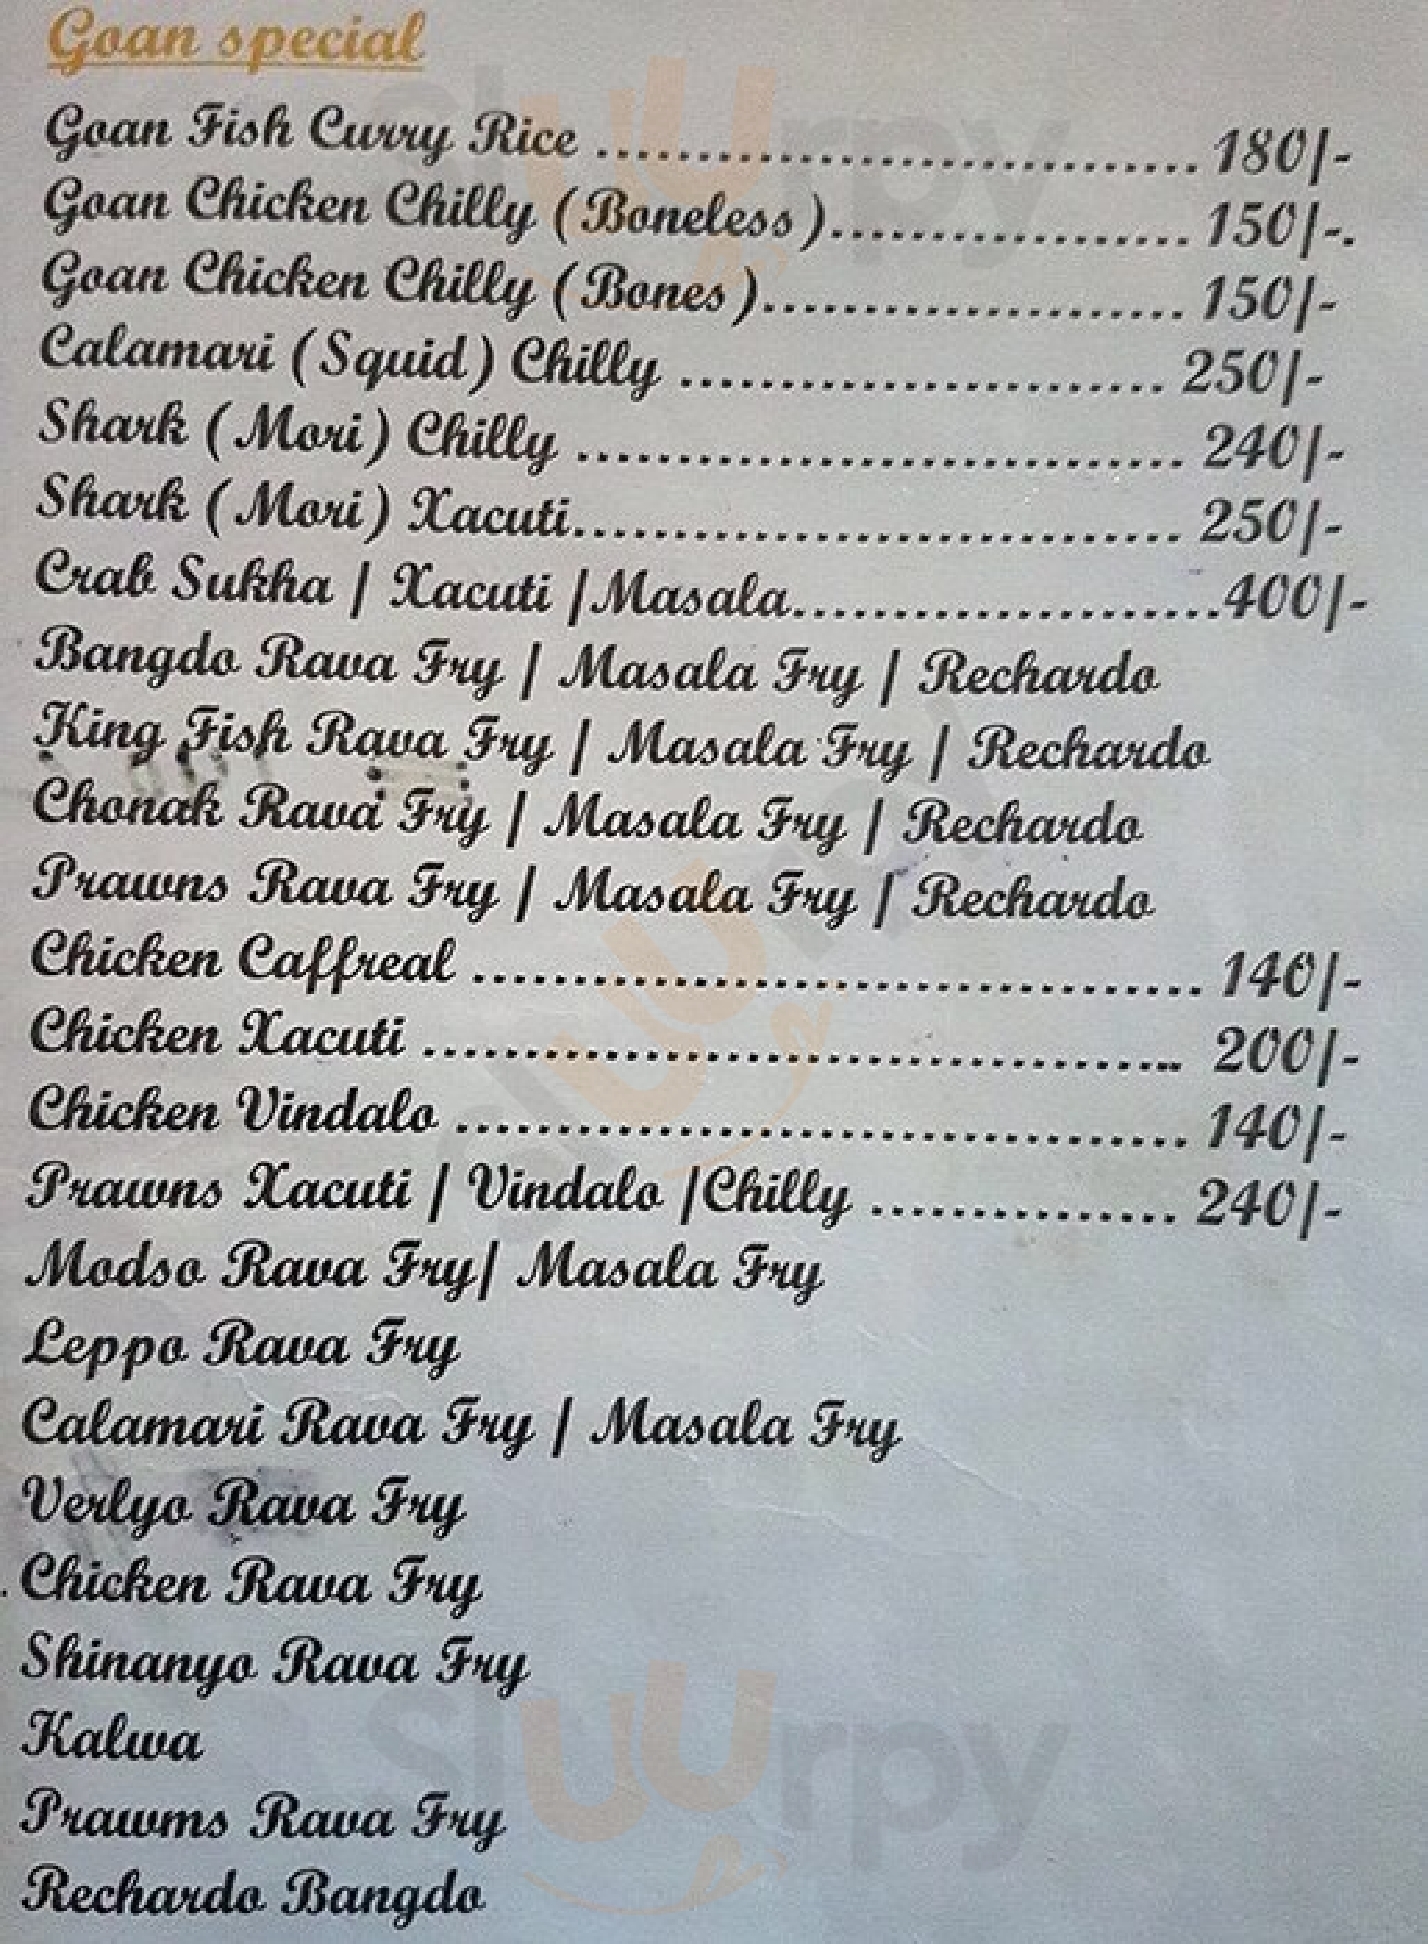 Goan special
Goan Fish Curry Rice .............................. 180/-
Goan Chicken Chilly (Boneless).................. 150/-.
Goan Chicken Chilly (Bones)..................... 150/-
Calamari (Squid) Chilly ........................ 250/-
Shark (Mori) Chilly .............................. 240/-
Shark (Mori) Xacuti.............................. 250/-
Crab Sukha / Xacuti /Masala.....................400/-
Bangdo Rava Fry / Masala Fry / Rechardo
King Fish Rava Fry / Masala Fry / Rechardo
Chonak Rava Fry / Masala Fry / Rechardo
Prawns Rava Fry / Masala Fry / Rechardo
Chicken Caffreal .................................... 140/-
Chicken Xacuti ...................................... 200/-
Chicken Vindalo .................................... 140/-
Prawns Xacuti / Vindalo /Chilly ............... 240/-
Modso Rava Fry/ Masala Fry
Leppo Rava Fry
Calamari Rava Fry / Masala Fry
Verlyo Rava Fry
Chicken Rava Fry
Shinanyo Rava Fry
Kalwa
Prawms Rava Fry
Rechardo Bangdo
sluurpy
sluurpy
sluurpy